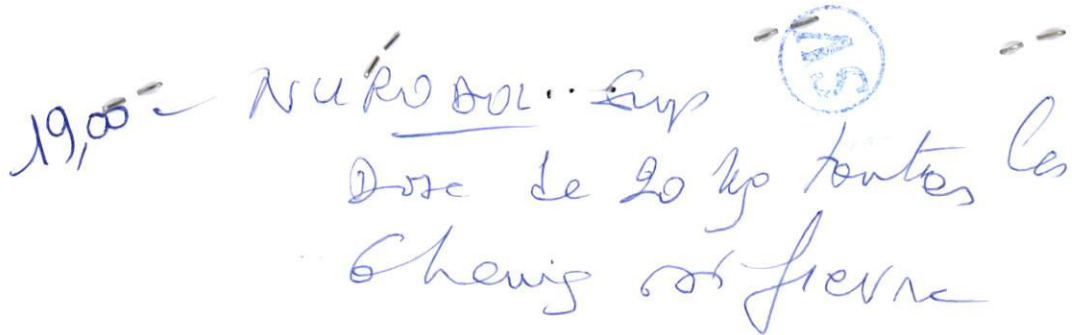 19,00 - NURODOL Sirop
Dose de 20 kg toutes les
6 heures si fièvre